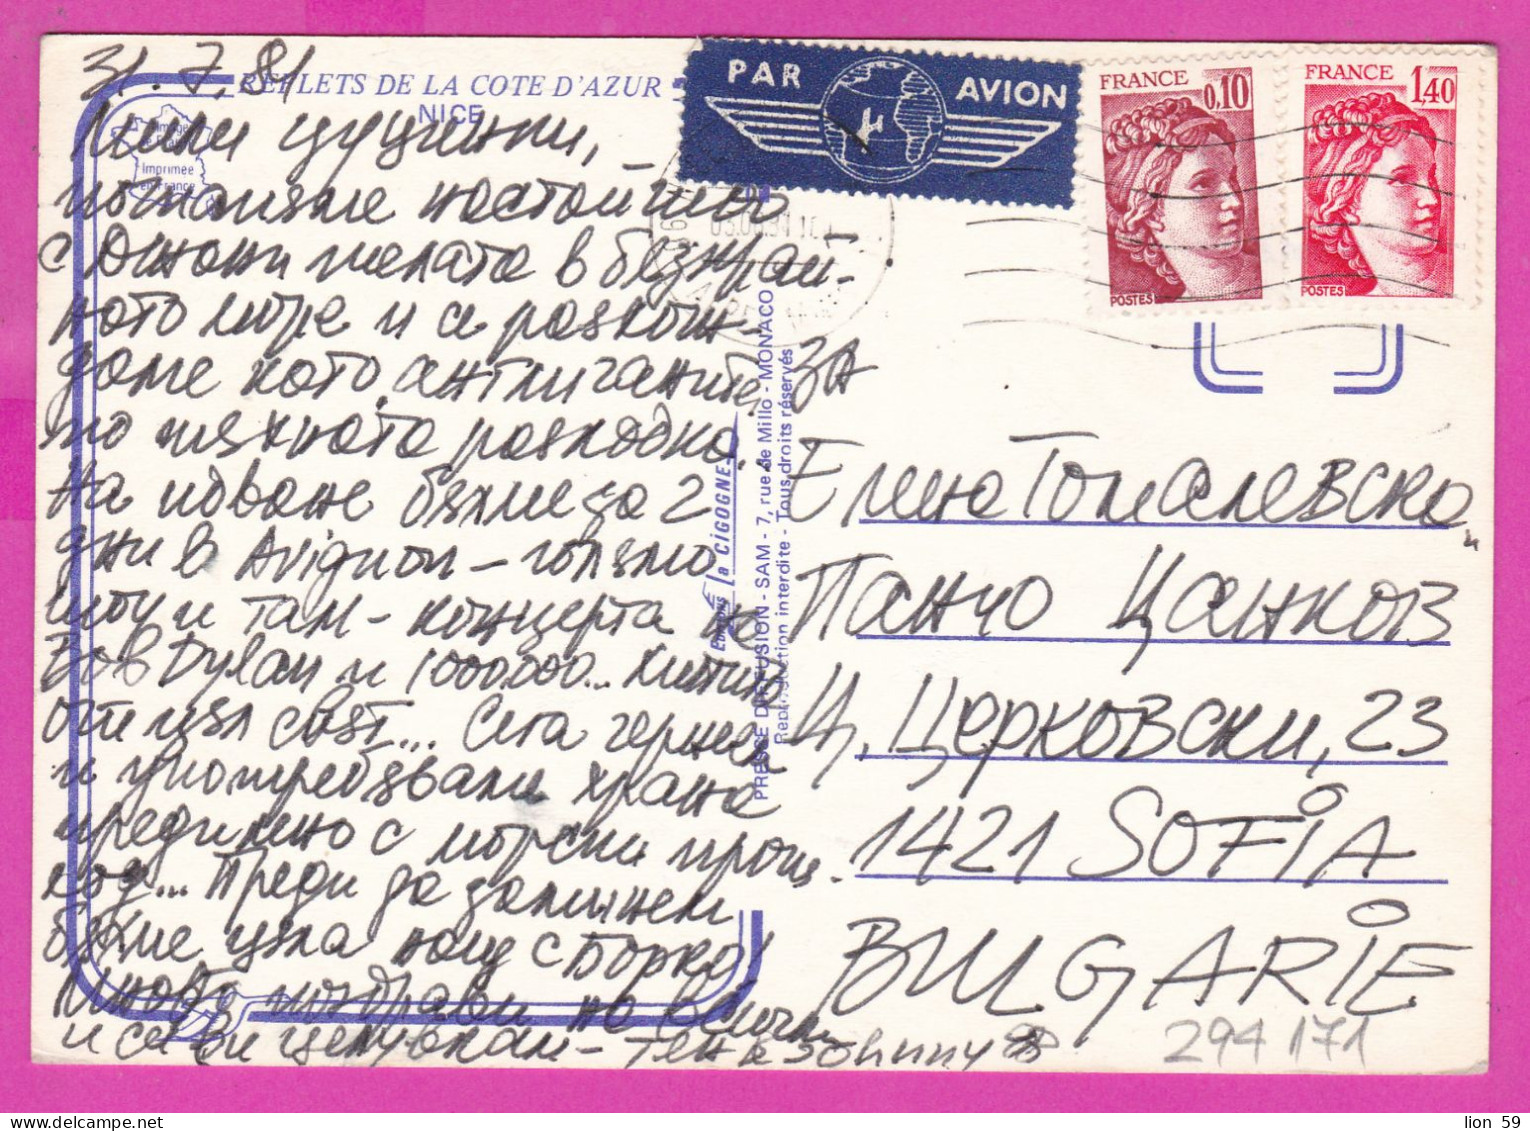 31.7.81
REFLETS DE LA COTE D'AZUR
NICE
Imprimée
en France
Мили
потапяме настойчиво
с Джони телата в безкрай-
ното море и се разхож-
даме като англичаните
по тяхната разходка.
На идване бяхме за 2
дни в Avignon – голямо
шоу и там – концерта на
Bob Dylan и 1000000... хипита
от цял свят... Сега
и употребяваме храна
предимно с морски произ-
ход... Преди да заминем
бяхме цяла нощ с Борко
Много поздрави на всички
и се целувкам – Johnny
PAR AVION
FRANCE
0,10
POSTES
FRANCE
1,40
POSTES
Editions la CIGOGNE
PRESSE DIFFUSION - SAM - 7, rue de Millo - MONACO
Reproduction interdite - Tous droits réservés
ЗА
Елена Томалевска
и
Панчо Цанков
Ц. Церковски, 23
1421 SOFIA
BULGARIE
294171
lion 59